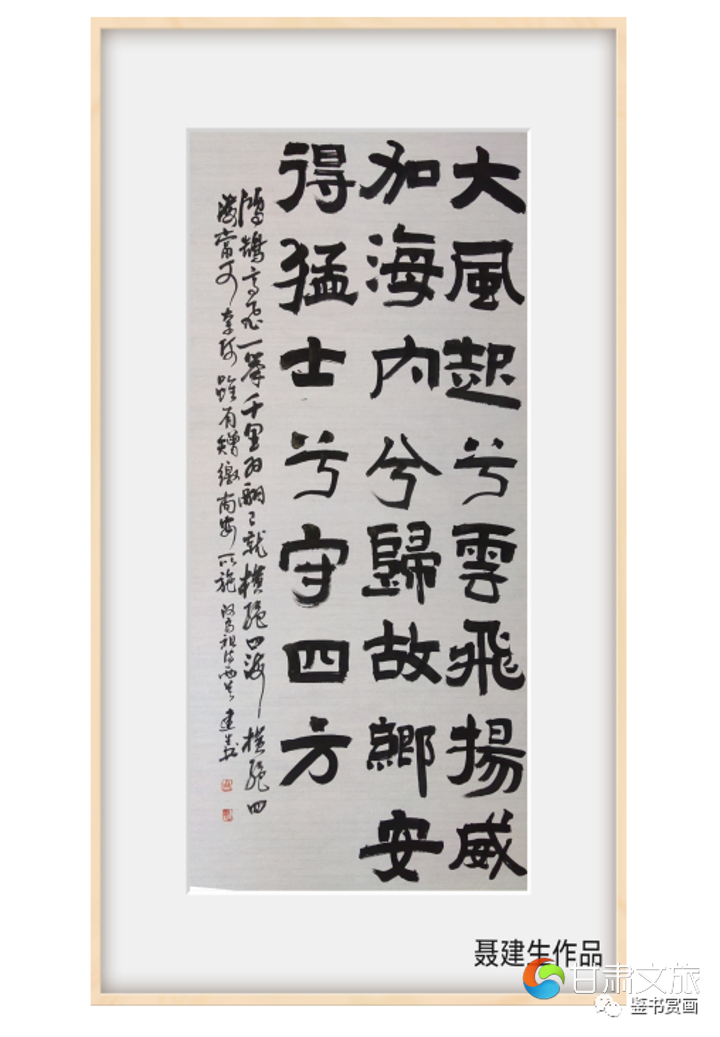 大風起兮雲飛揚威
加海内兮歸故鄉安
得猛士兮守四方
鴻鵠高飛一舉千里羽翮已就橫絕四海橫絕四
海當可奈何雖有矰繳尚安所施漢高祖詩兩首建生書
聂建生作品
甘肃文旅
鉴书赏画